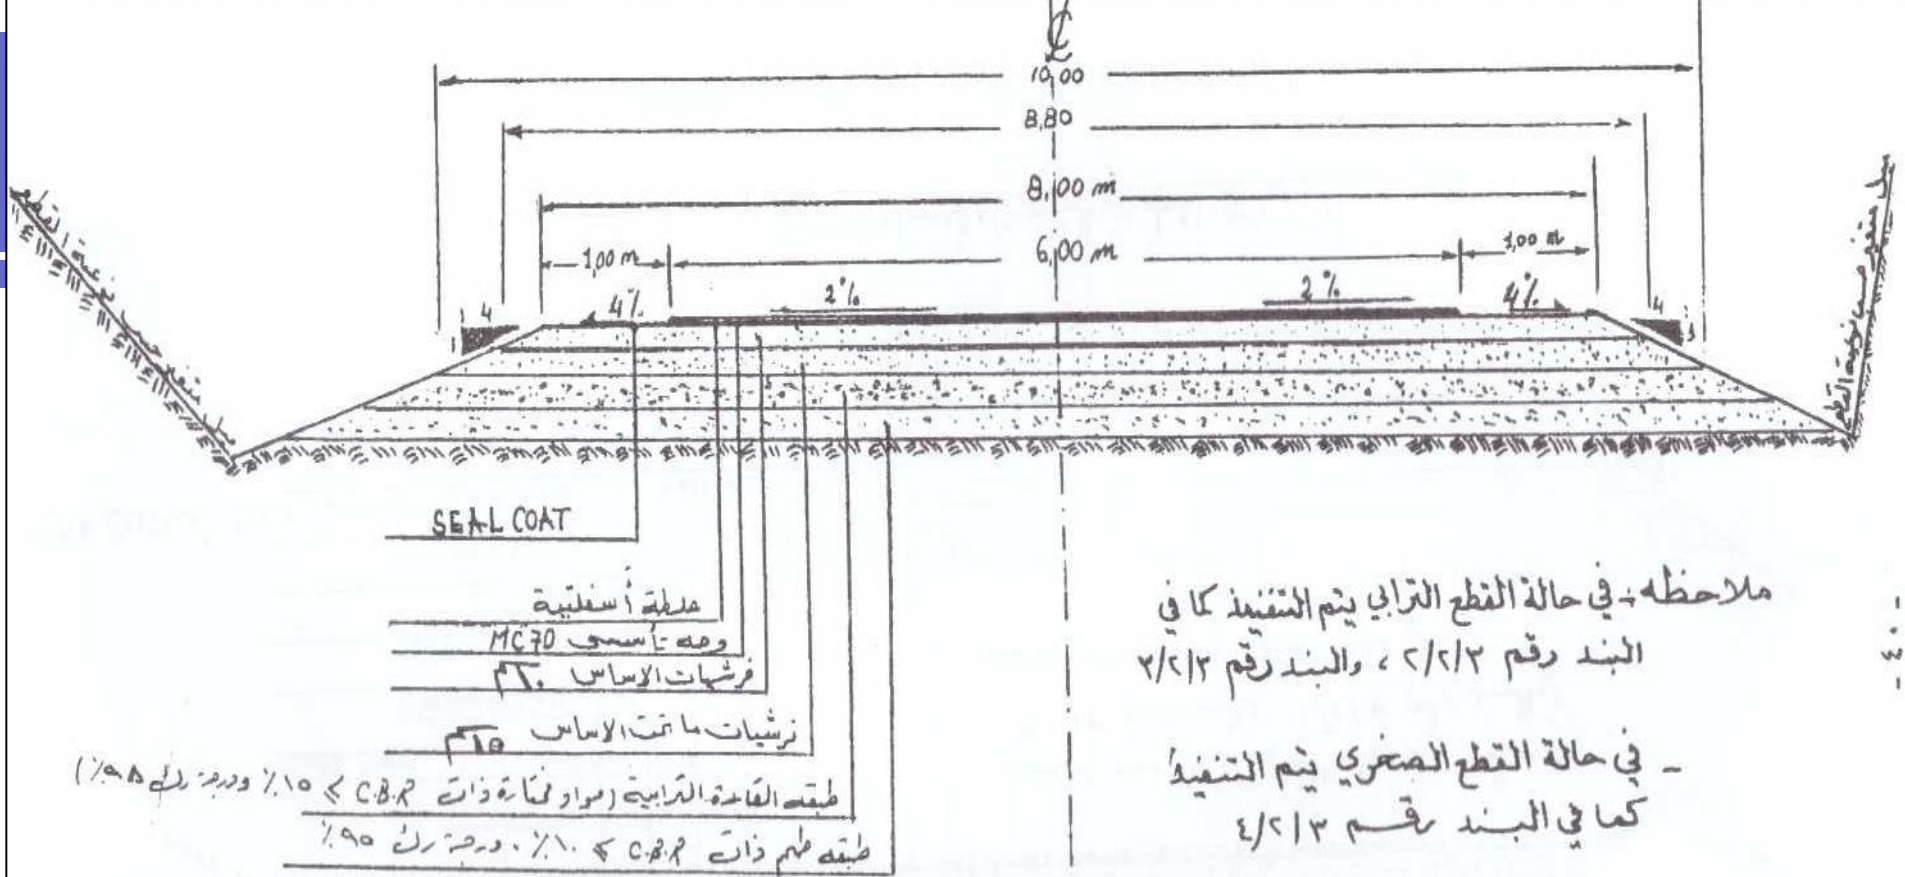 ℄
10,00
8,80
8,00 m
1,00 m
6,00 m
1,00 m
4
4%
2%
2%
4%
4
1
ميل متغير حسب نوعية القطع
ميل متغير حسب نوعية القطع
SEAL COAT
خلطة أسفلتية
وجه تأسيسي MC70
فرشيات الاساس ٢٠سم
فرشيات ما تحت الاساس ١٥سم
طبقه القاعدة الترابية (مواد مختارة ذات C.B.R ≥ ١٥٪ ودرجة رك ٩٨٪)
طبقه طم ذات C.B.R ≥ ١٠٪ . درجة رك ٩٥٪
ملاحظه :- في حالة القطع الترابي يتم التنفيذ كما في
البند رقم ٢/٢/٣ ، والبند رقم ٣/٢/٣
- في حالة القطع الصخري يتم التنفيذ
كما في البند رقم ٤/٢/٣
- ٤٠ -